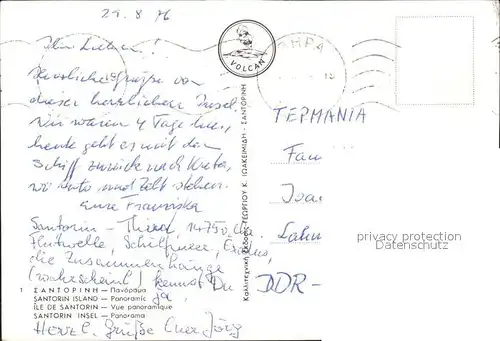 29.8.76
Ihr Lieben!
Herzliche Grüße von
dieser herrlichen Insel.
Wir waren 4 Tage hier,
heute geht es mit dem
Schiff zurück nach Kreta,
wo Auto und Zelt stehen.
Eure Franziska
Santorin - Thira, 1475 v. Chr.
Flutwelle,
die Zusammenhänge
(wahrscheinl.) kennst Du
ja,
Herzl. Grüße Euer Jörg
VOLCAN
ΤΕΡΜΑΝΙΑ
Fam
Lahn
DDR-
privacy protection
Datenschutz
Καλλιτεχνική Έκδοσις ΓΕΩΡΓΙΟΥ Κ. ΙΩΑΚΕΙΜΙΔΗ - ΣΑΝΤΟΡΙΝΗ
1 ΣΑΝΤΟΡΙΝΗ — Πανόραμα
SANTORIN ISLAND — Panoramic
ÎLE DE SANTORIN — Vue panoramique
SANTORIN INSEL — Panorama